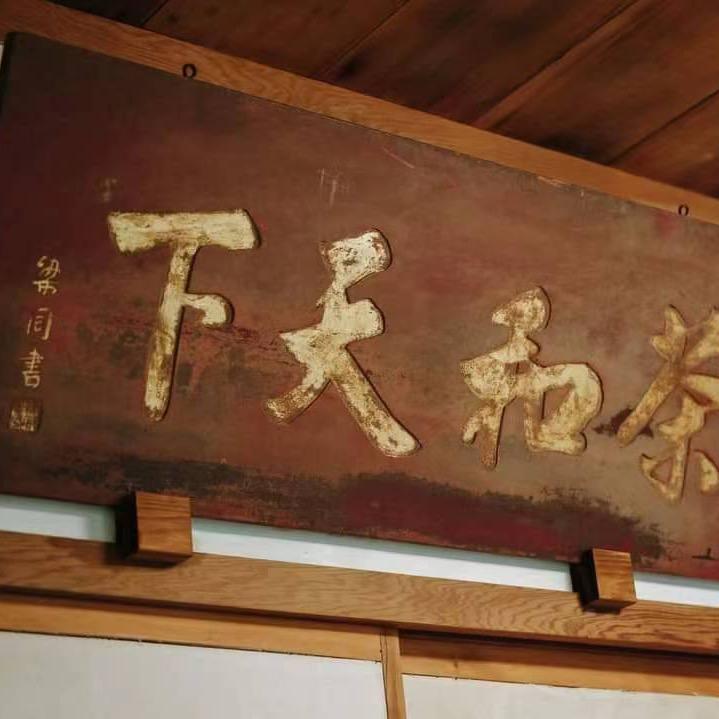 茶和天下
梁同書